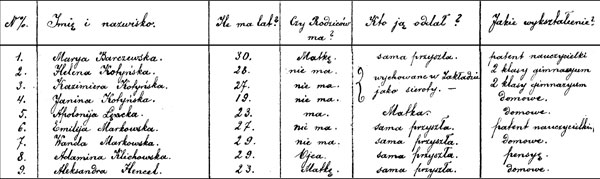 N %. Imię i nazwisko. Ile ma lat? Czy Rodziców ma? Kto ją oddał? Jakie wykształcenie?
1. Marya Barczewska. 30. Matkę. sama przyszła. patent nauczycielki
2. Helena Kotyńska. 28. nie ma. wychowane w Zakładzie 2 klasy gimnazyum
3. Kazimiera Kotyńska. 27. nie ma. jako sieroty. — 2 klasy gimnazyum
4. Janina Kotyńska. 19. nie ma. domowe.
5. Apolonija Lęacka. 23. ma. Matka. domowe.
6. Emilija Markowska. 27. ni ma. sama przyszła. patent nauczycielki,
7. Wanda Markowska. 29. nie ma. sama przyszła. domowe.
8. Adamina Klichowska. 29. Ojca. sama przyszła. pensyę.
9. Aleksandra Hencel. 23. Matkę. sama przyszła. domowe.